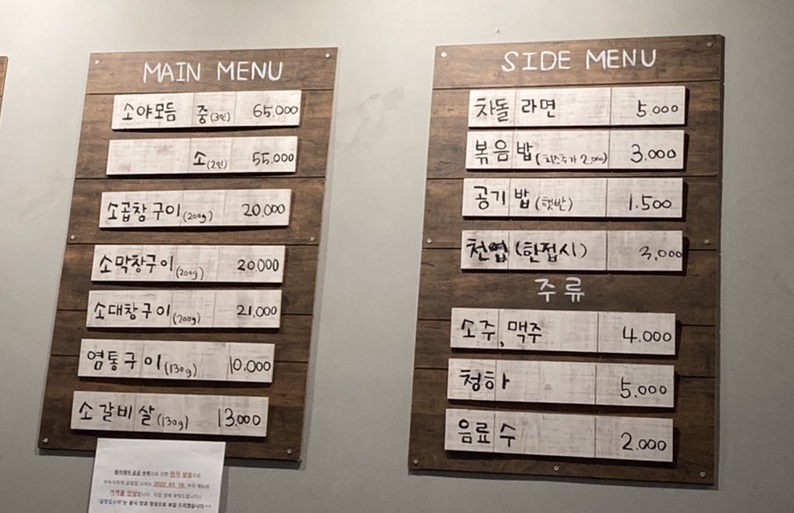 MAIN MENU
소야모듬 중(3인) 65,000
소(2인) 55,000
소곱창구이(200g) 20,000
소막창구이(200g) 20000
소대창구이(200g) 21,000
염통구이(130g) 10,000
소갈비살(130g) 13,000
SIDE MENU
차돌라면 5,000
볶음밥(치즈추가 2,000) 3,000
공기밥(햇반) 1.500
천엽(한접시) 3,000
주류
소주, 맥주 4.000
청하 5,000
음료수 2,000
2022. 01. 10.